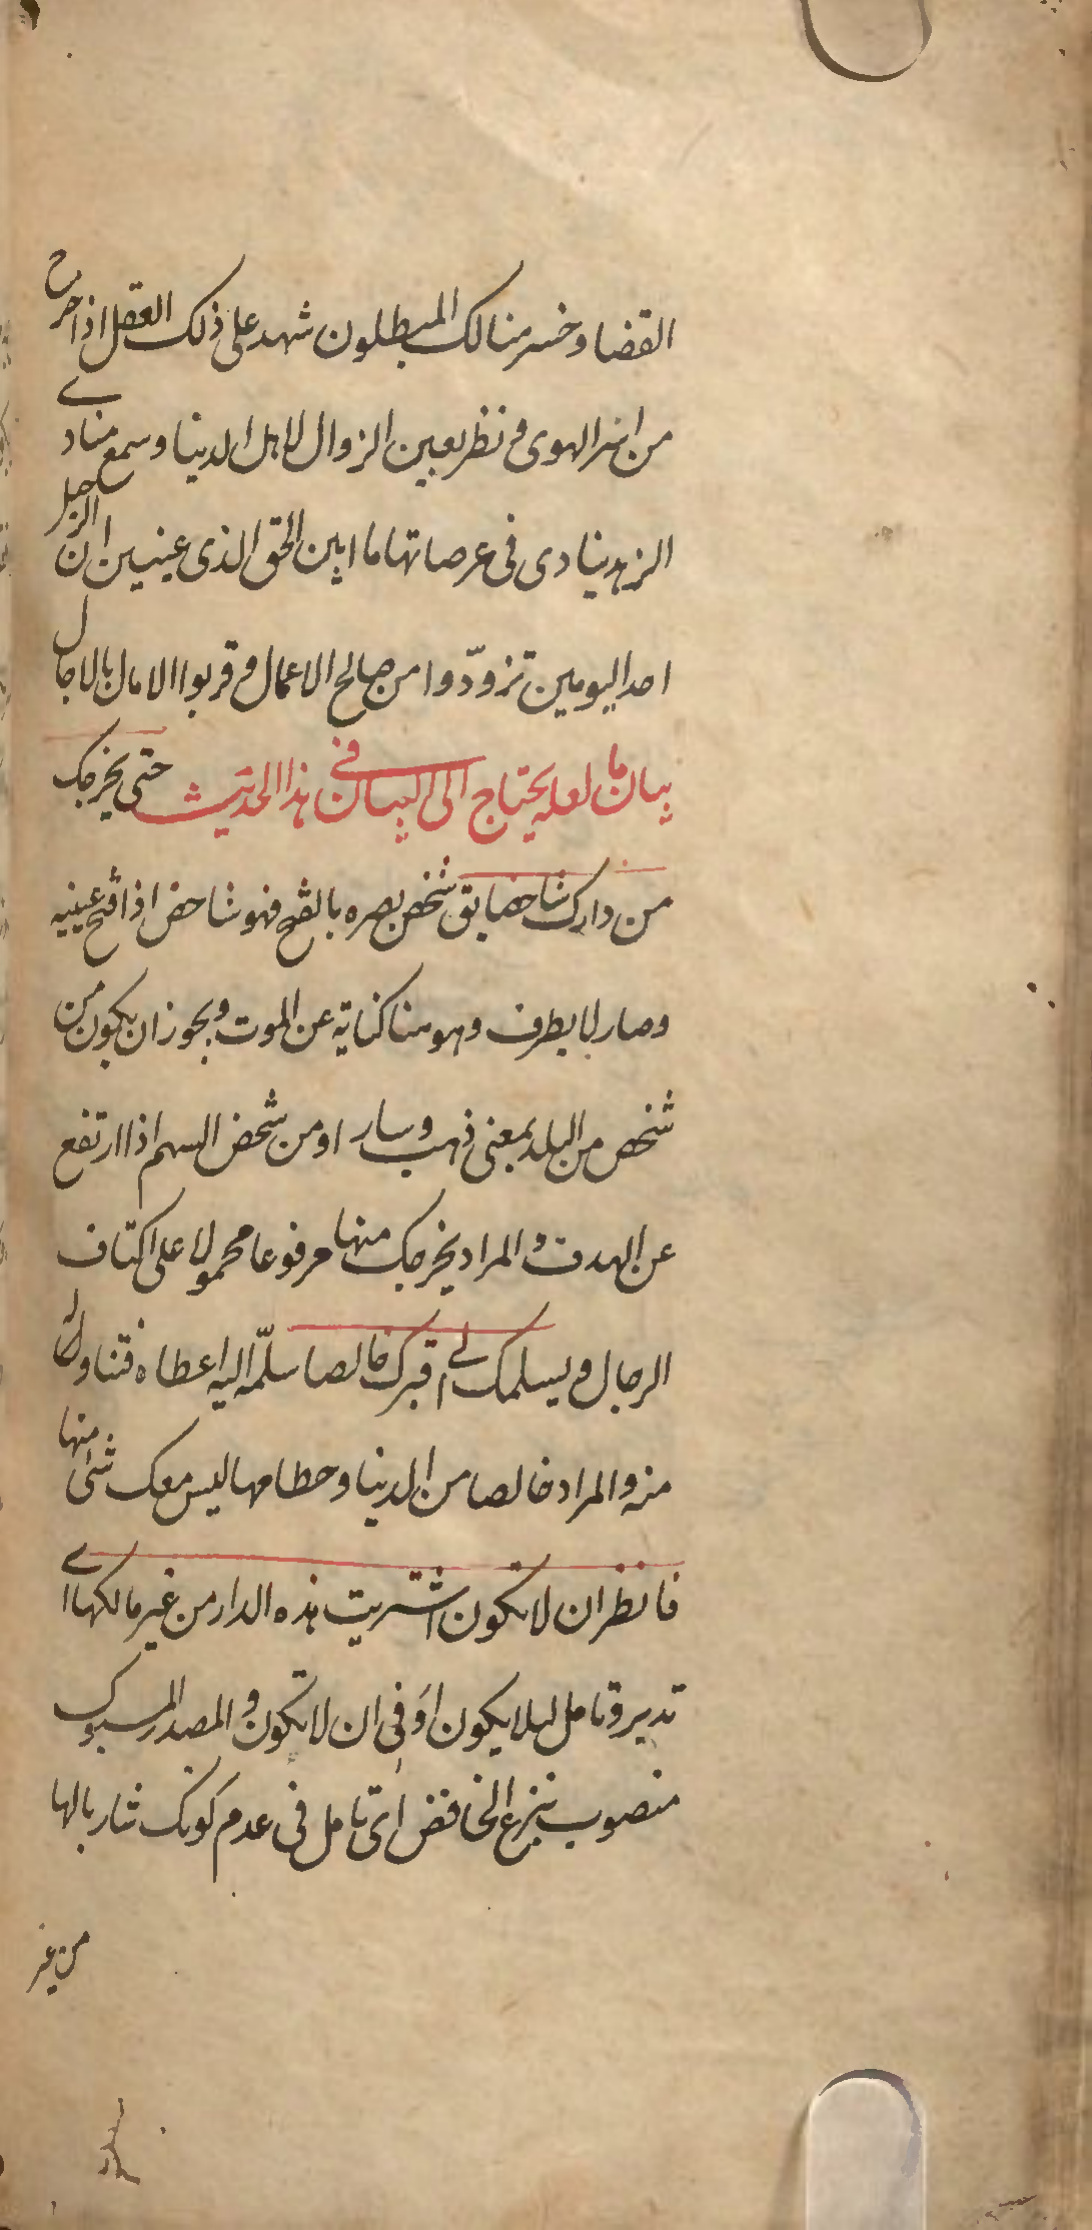 القضا وخسر هنالك المبطلون شهد على ذلك العقل اذا خرج
من اسر الهوى و نظر بعين الزوال لاهل الدنيا وسمع منادى
الزهد ينادى فى عرصاتها ما ابين الحق الذى عينين ان الرحيل
احد اليومين تزوّدوا من صالح الاعمال و قربوا الامال بالاجال
بيان ما لعله يحتاج الى البيان فى هذا الحديث حتى يخرجك
من دارك شاخصا يق شخص بصره بالفتح فهو شاخص اذا فتح عينيه
وصار لا يطرف وهو هنا كناية عن الموت ويجوز ان يكون من
شخص من البلد بمعنى ذهب وسار او من شخص السهم اذا ارتفع
عن الهدف و المراد يخرجك منها مرفوعا محمولا على اكتاف
الرجال و يسلمك الى قبرك خالصا سلّمه اليه اعطاه فتناوله
منه والمراد خالصا من الدنيا وحطامها ليس معك شئ منها
فانظر ان لا تكون اشتريت هذه الدار من غير مالكها اى
تدبر و تامل ليلا يكون او فى ان لا تكون و المصدر المسبوك
منصوب بنزع الخافض اى تامل فى عدم كونك شاريا لها
من غير